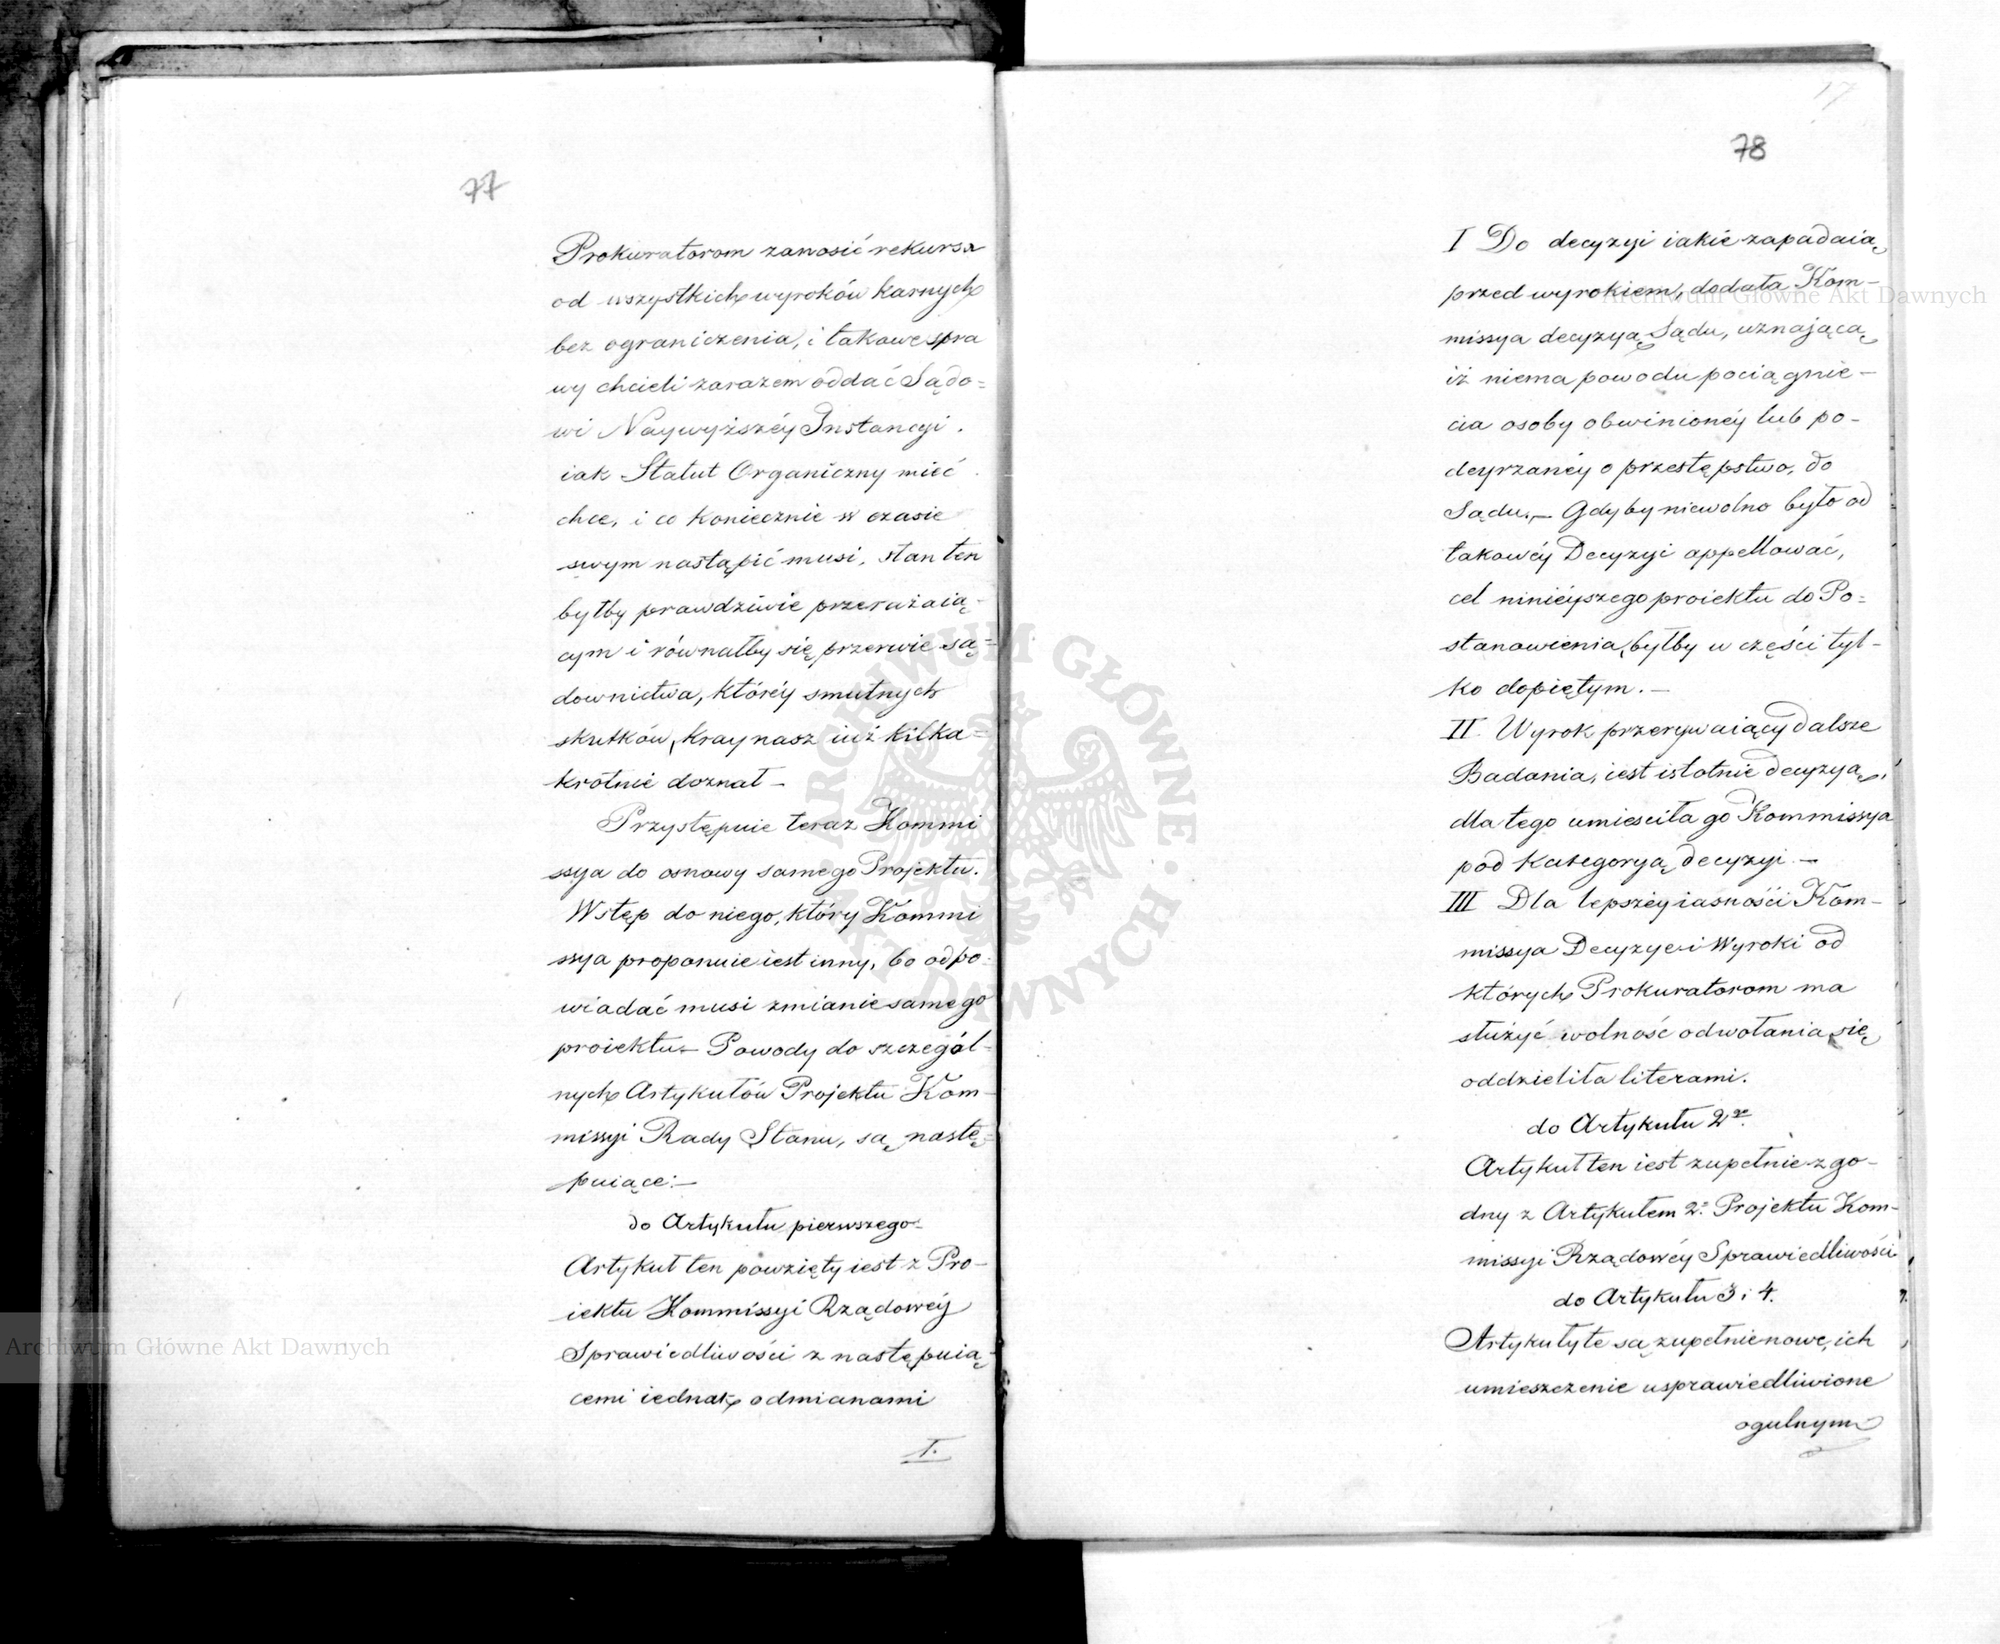 77
Prokuratorom zanosić rekursa
od wszystkich wyroków karnych
bez ograniczenia, i takowe spra
wy chcieli zarazem oddać Sądo=
wi Naywyższéy Instancyi.
iak Statut Organiczny mieć
chce, i co koniecznie w czasie
swym nastąpić musi, stan ten
byłby prawdziwie przerażaią-
cym i równałby się przerwie są=
downictwa, któréy smutnych
skutków, kray nasz iuż kilka=
krotnie doznał -
Przystępuie teraz Kommi
ssya do osnowy samego Projektu.
Wstęp do niego, który Kommi
ssya proponuie iest inny, bo odpo=
wiadać musi zmianie samego
proiektu.- Powody do szczegól-
nych Artykułów Projektu Kom-
missyi Rady Stanu, są nastę-
puiące:-
do Artykułu pierwszego.
Artykuł ten powzięty iest z Pro-
iektu Kommissyi Rządowéy
Sprawiedliwości z następuią-
cemi iednak odmianami
I.
17
78
I Do decyzyi iakie zapadaią
przed wyrokiem, dodała Kom-
missya decyzyą Sądu, uznającą
iż niema powodu pociągnie-
cia osoby obwinionéy lub po-
deyrzanéy o przestępstwo, do
Sądu.- Gdyby niewolno było od
takowéy Decyzyi appellować,
cel ninieyszego proiektu do Po=
stanowienia, byłby w części tyl-
ko dopiętym.-
II. Wyrok przerywaiący dalsze
Badania, iest istotnie decyzyą,
dla tego umieściła go Kommissya
pod kategoryą decyzyi -
III Dla lepszéy iasności Kom-
missya Decyzye i Wyroki od
których Prokuratorom ma
służyć wolność odwołania się
oddzieliła literami.
do Artykułu 2go.
Artykuł ten iest zupełnie zgo-
dny z Artykułem 2. Projektu Kom-
missyi Rządowéy Sprawiedliwości
do Artykułu 3 i 4.
Artykuły te są zupełnie nowe, ich
umieszczenie usprawiedliwione
ogulnym
Archiwum Główne Akt Dawnych
Archiwum Główne Akt Dawnych
ARCHIWUM GŁÓWNE AKT DAWNYCH